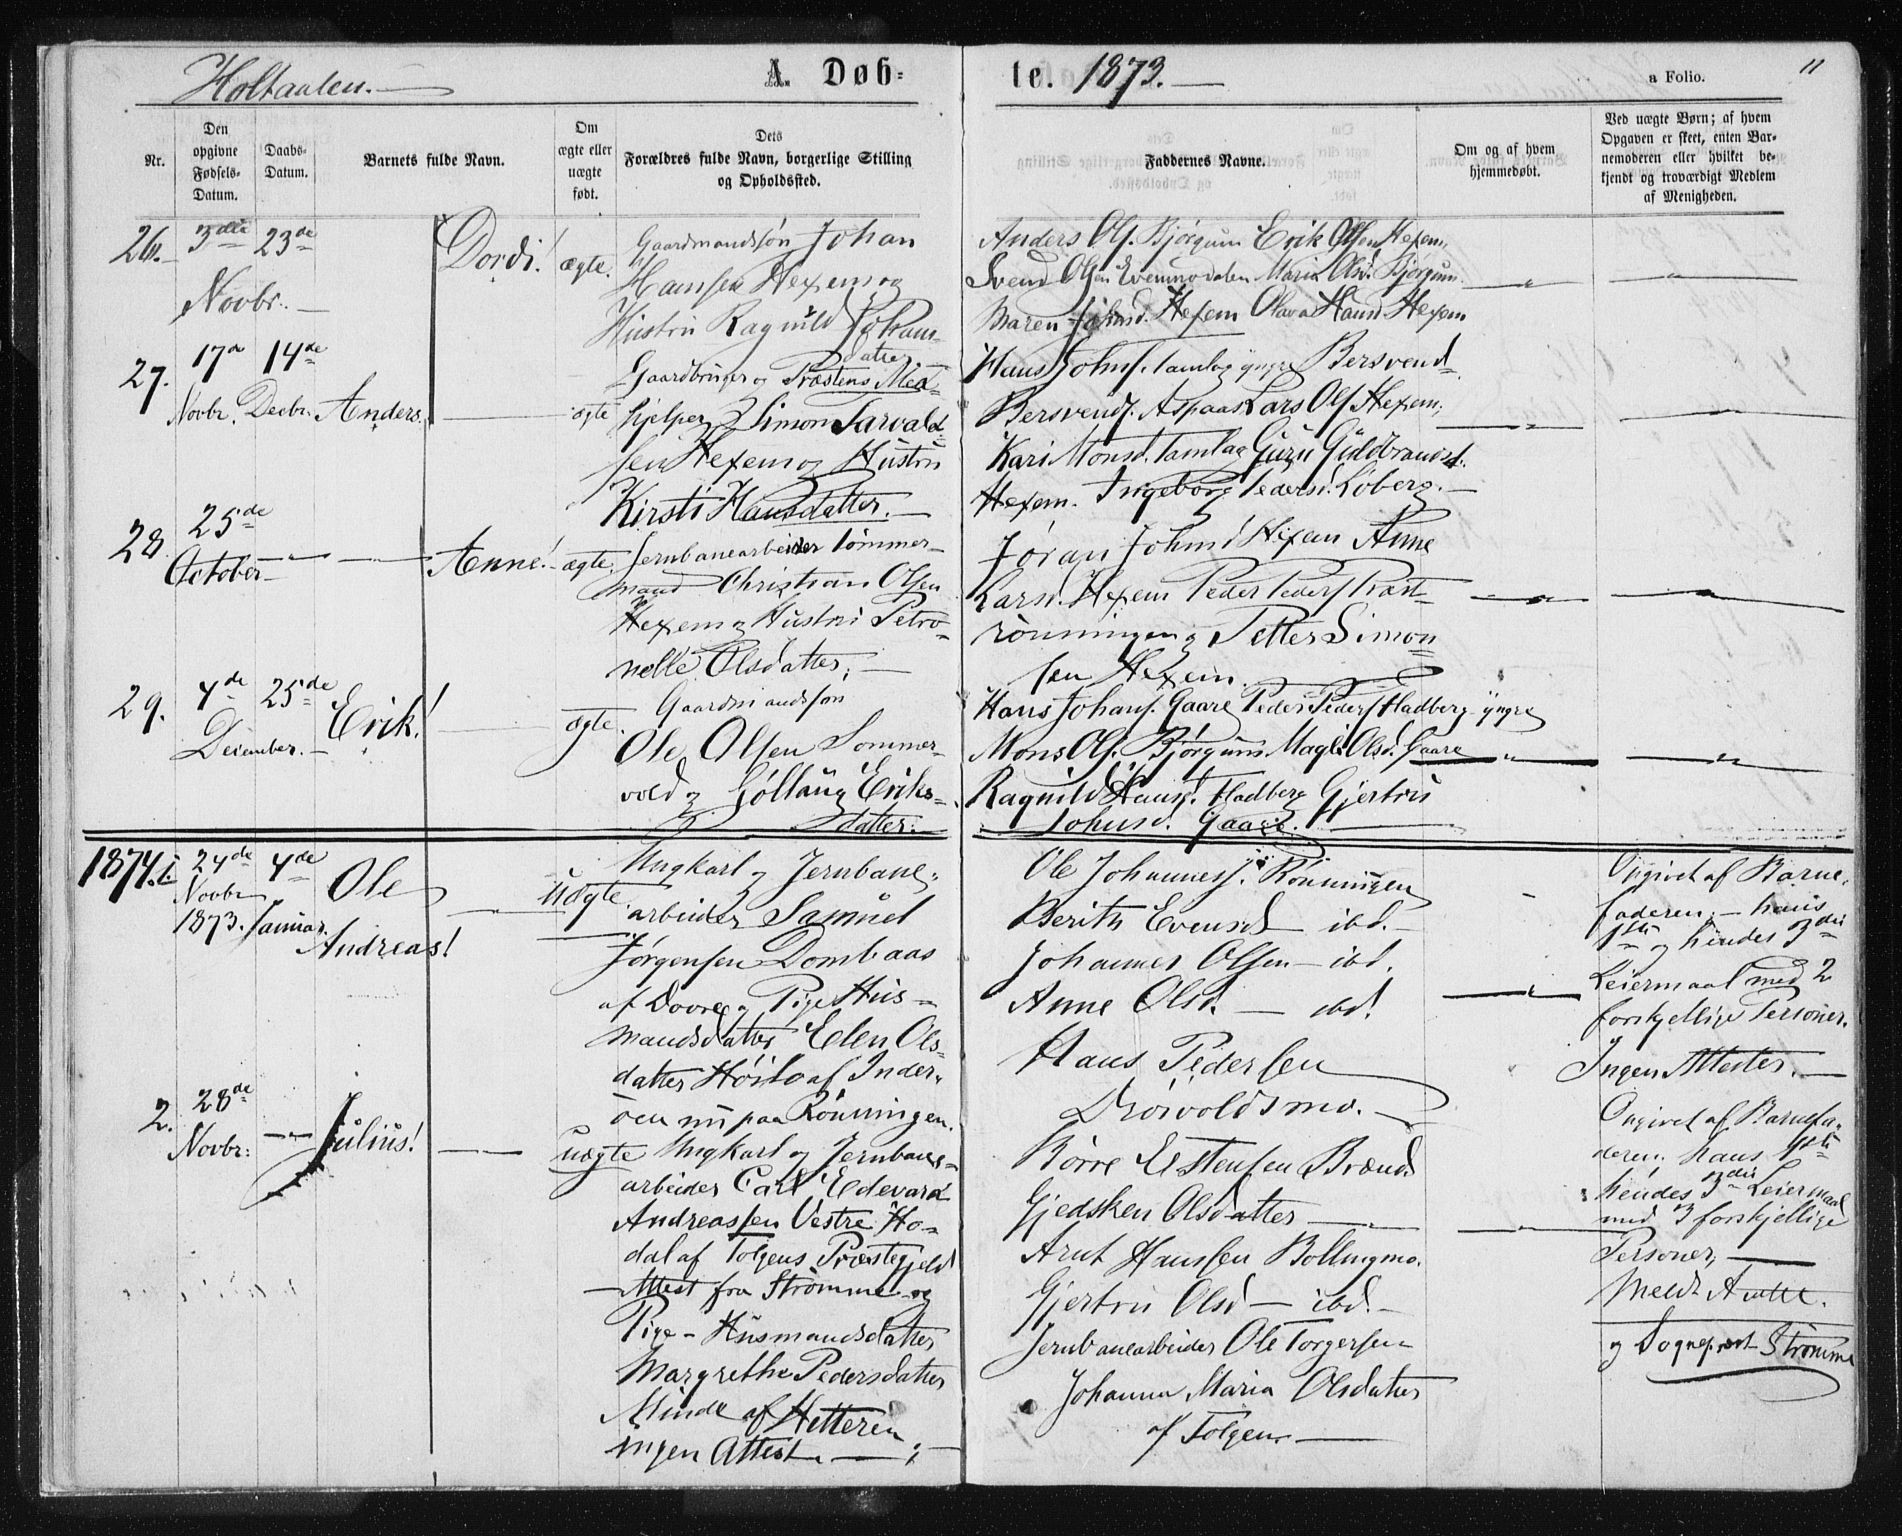 Holtaalen.
A. Døb-
te. 1873.
a Folio.
11
Nr.
Den opgivne Fødsels-Datum.
Daabs-Datum.
Barnets fulde Navn.
Om ægte eller uægte født.
Dets
Forældres fulde Navn, borgerlige Stilling
og Opholdssted.
Faddernes Navne.
Om og af hvem
hjemmedøbt.
Ved uægte Børn; af hvem
Opgaven er skeet, enten Bar-
nemoderen eller hvilket be-
kjendt og troværdigt Medlem
af Menigheden.
26. 3die Novbr. 23de Dordi! ægte.
Gaardmandsøn Johan
Hansen Hexem og
Hustru Ragnild Johans-
datter
Anders Ols. Bjørgum Erik Olsen Hexem,
Svend Olsen Evenmodalen Maria Olsd. Bjørgum
Maren Johnsd. Hexem Olava Hansd Hexem
27. 17de Novbr. 14de Decbr. Anders. ægte
Gaardbruger og Præstens Med-
hjelper Simon Sarvald-
sen Hexem og Hustru
Kirsti Hansdatter.
Hans Johns. Tamlag yngre Bersvend
Bersvends. Aspaas Lars Ols Hexem,
Kari Monsd. Tamlag Guru Guldbrandsd.
Hexem. Ingeborg Pedersd. Loberg.
28. 25de October Anne! ægte.
Jernbanearbeider Tømmer-
mand Christian Olsen
Hexem og Hustru Petro-
nelle Olsdatter,
Jøran Johnsd Hexem Anne
Larsd. Hexem Peder Peders
rønningen og Petter Simon
sen Hexem.
29. 4de December. 25de Erik! ægte.
Gaardmandsøn
Ole Olsen Sommer-
vold og Gøllaug Eriks-
datter.
Hans Johans. Gaare Peder Peders Fladberg yngre
Mons Ols. Bjørgum Magli Olsd. Gaare
Ragnild Hansd. Fladberg Gjertru
Johnsd. Gaare.
1874. 1. 24de Novbr 1873. 4de Januar. Ole
Andreas! uægte
Ungkarl og Jernbane-
arbeider Samuel
Jørgensen Dombaas
af Dovre og Pige Hus-
mandsdatter Elen Ols-
datter Høilo af Inder-
øen nu paa Rønningen.
Ole Johanness. Rønningen
Berith Evensd ibd.
Johannes Olsen ibd.
Anne Olsd. ibd.
Hans Pedersen
Drøivoldsmo.
Opgivet af Barne-
faderen, hans
1ste og hendes 3die
Leiermaal med 2
forskjellige Personer.
Ingen Attester.
2. 28de Novbr: Julius! uægte
Ungkarl og Jernbane-
arbeider Carl Edevard
Andreassen Vestre Ho-
dal af Tolgens Præstegjeld
Attest fra Strømme og
Pige - Husmandsdatter
Margrethe Pedersdatter
Minde af Hitteren
ingen Attest.
Børre Estensen Brænd
Gjedsken Olsdatter
Arnt Hanssen Bollingmo.
Gjertru Olsd ibd.
Jernbanearbeider Ole Torgersen
Johanna Maria Olsdatter
af Tolgen.
Opgivet af Barnefa-
deren. Hans 1ste
hendes 3die Leiermaal
med 3 forskjellige
Personer,
Meldt
og Sogneprest Strømme